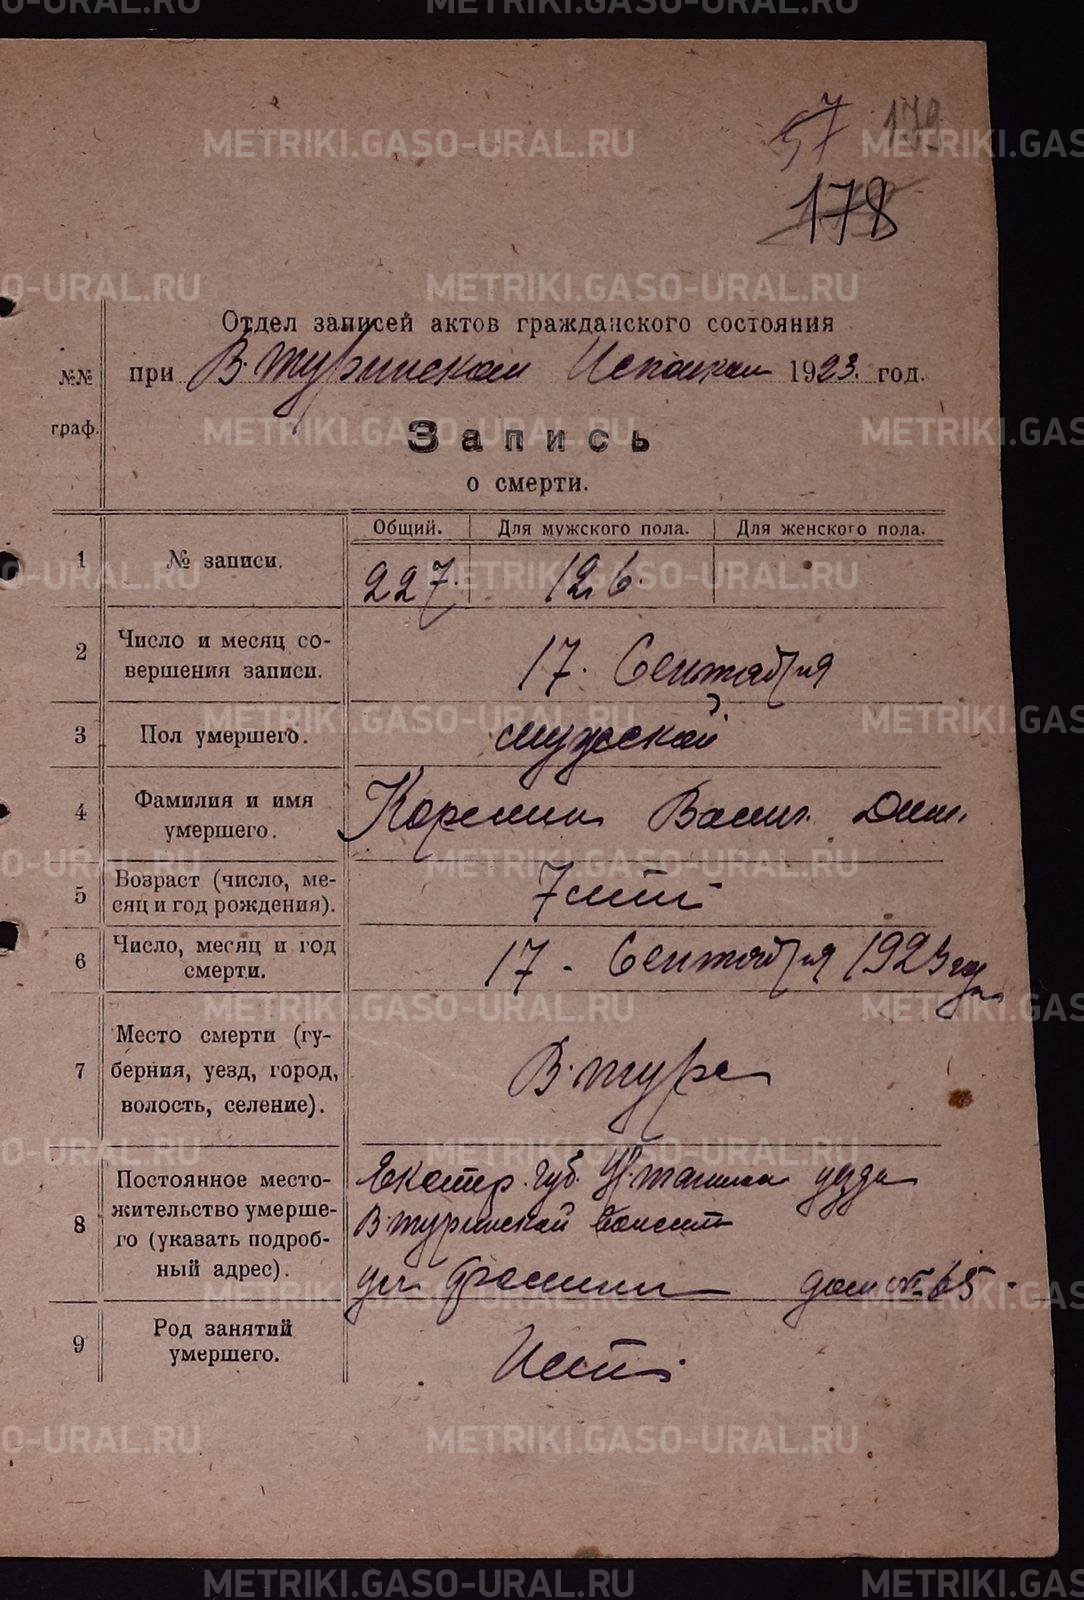 57 179
178
Отдел записей актов гражданского состояния
при В. Туринском Исполком 1923. год.
№№ граф.
Запись
о смерти.
Общий. Для мужского пола. Для женского пола.
1 № записи. 227. 126.
2 Число и месяц со-
вершения записи. 17. Сентября
3 Пол умершего. мужской
4 Фамилия и имя
умершего. Васил. Дим.
5 Возраст (число, ме-
сяц и год рождения). 7 лет
6 Число, месяц и год
смерти. 17 - Сентября 1923 год
7 Место смерти (гу-
берния, уезд, город,
волость, селение). В. Туре
8 Постоянное место-
жительство умерше-
го (указать подроб-
ный адрес). Екатер. губ. Н. Тагила уезда
В. Туринской
ул. дом № 65
9 Род занятий
умершего.
METRIKI.GASO-URAL.RU